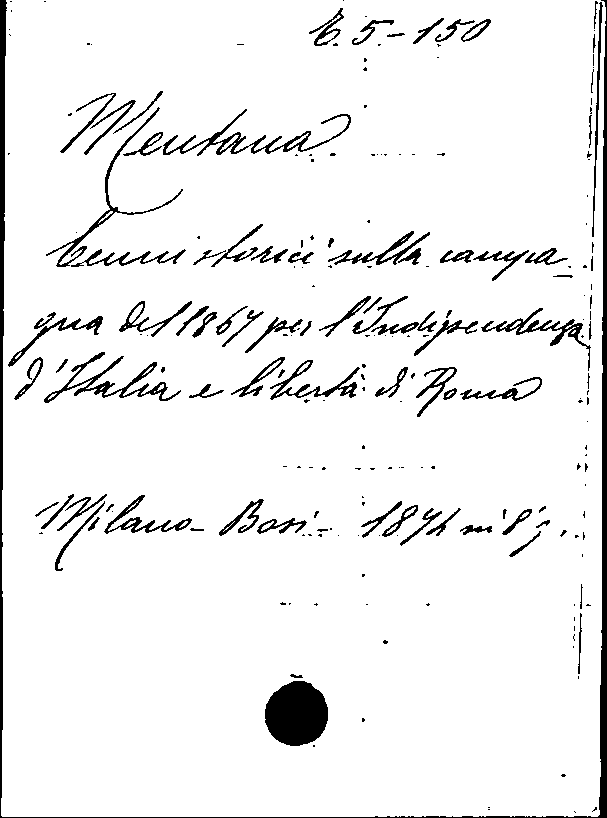 E. 5-150
Mentana
Cenni storici sulla campa-
gna del 1867 per l'Indipendenza
d'Italia e libertà di Roma
Milano - Bosi - 1874 in 8°